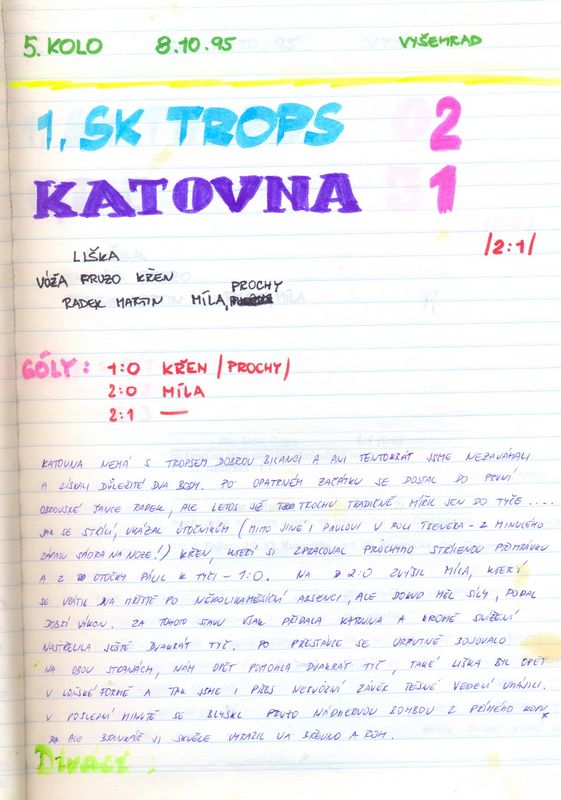 5. KOLO 8.10.95 VYŠEHRAD
1. SK TROPS 2
KATOVNA 1
/2:1/
LIŠKA
VÓŽA PRUZO KŘEN
RADEK MARTIN MÍLA, PROCHY
GÓLY: 1:0 KŘEN /PROCHY/
2:0 MÍLA
2:1 —
KATOVNA NEMÁ S TROPSEM DOBROU BILANCI A ANI TENTOKRÁT JSME NEZAVÁHALI
A ZÍSKALI DŮLEŽITÉ DVA BODY. PO OPATRNÉM ZAČÁTKU SE DOSTAL DO PRVNÍ
OBROVSKÉ ŠANCE RADEK, ALE LETOS JIŽ TROCHU TRADIČNĚ MÍŘIL JEN DO TYČE ....
JAK SE STŘÍLÍ, UKÁZAL ÚTOČNÍKŮM (MIMO JINÉ I PAULOVI V ROLI TRENÉRA - Z MINULÉHO
ZÁPASU SÁDRA NA NOZE!) KŘEN, KTERÝ SI ZPRACOVAL PROCHYHO PŘIHRÁVKU
A Z OTOČKY PÁLIL K TYČI - 1:0. NA 2:0 ZVÝŠIL MÍLA, KTERÝ
SE VRÁTIL NA HŘIŠTĚ PO NĚKOLIKAMĚSÍČNÍ ABSENCI, ALE DOKUD MĚL SÍLY, PODAL
DOBRÝ VÝKON. ZA TOHOTO STAVU VŠAK PŘIDALA KATOVNA A KROMĚ SNÍŽENÍ
NASTŘELILA JEŠTĚ DVAKRÁT TYČ. PO PŘESTÁVCE SE URPUTNĚ BOJOVALO
NA OBOU STRANÁCH, NÁM OPĚT POMOHLA DVAKRÁT TYČ, TAKÉ LIŠKA BYL OPĚT
V LOŇSKÉ FORMĚ A TAK JSME I PŘES NERVÓZNÍ ZÁVĚR TĚSNÉ VEDENÍ UHÁJILI.
V POSLEDNÍ MINUTĚ SE BLÝSKL PRUZO NÁDHERNOU BOMBOU Z PŘÍMÉHO KOPU,
ALE BRANKÁŘ JI SKVĚLE VYRAZIL NA BŘEVNO A ROH.
Diváci: